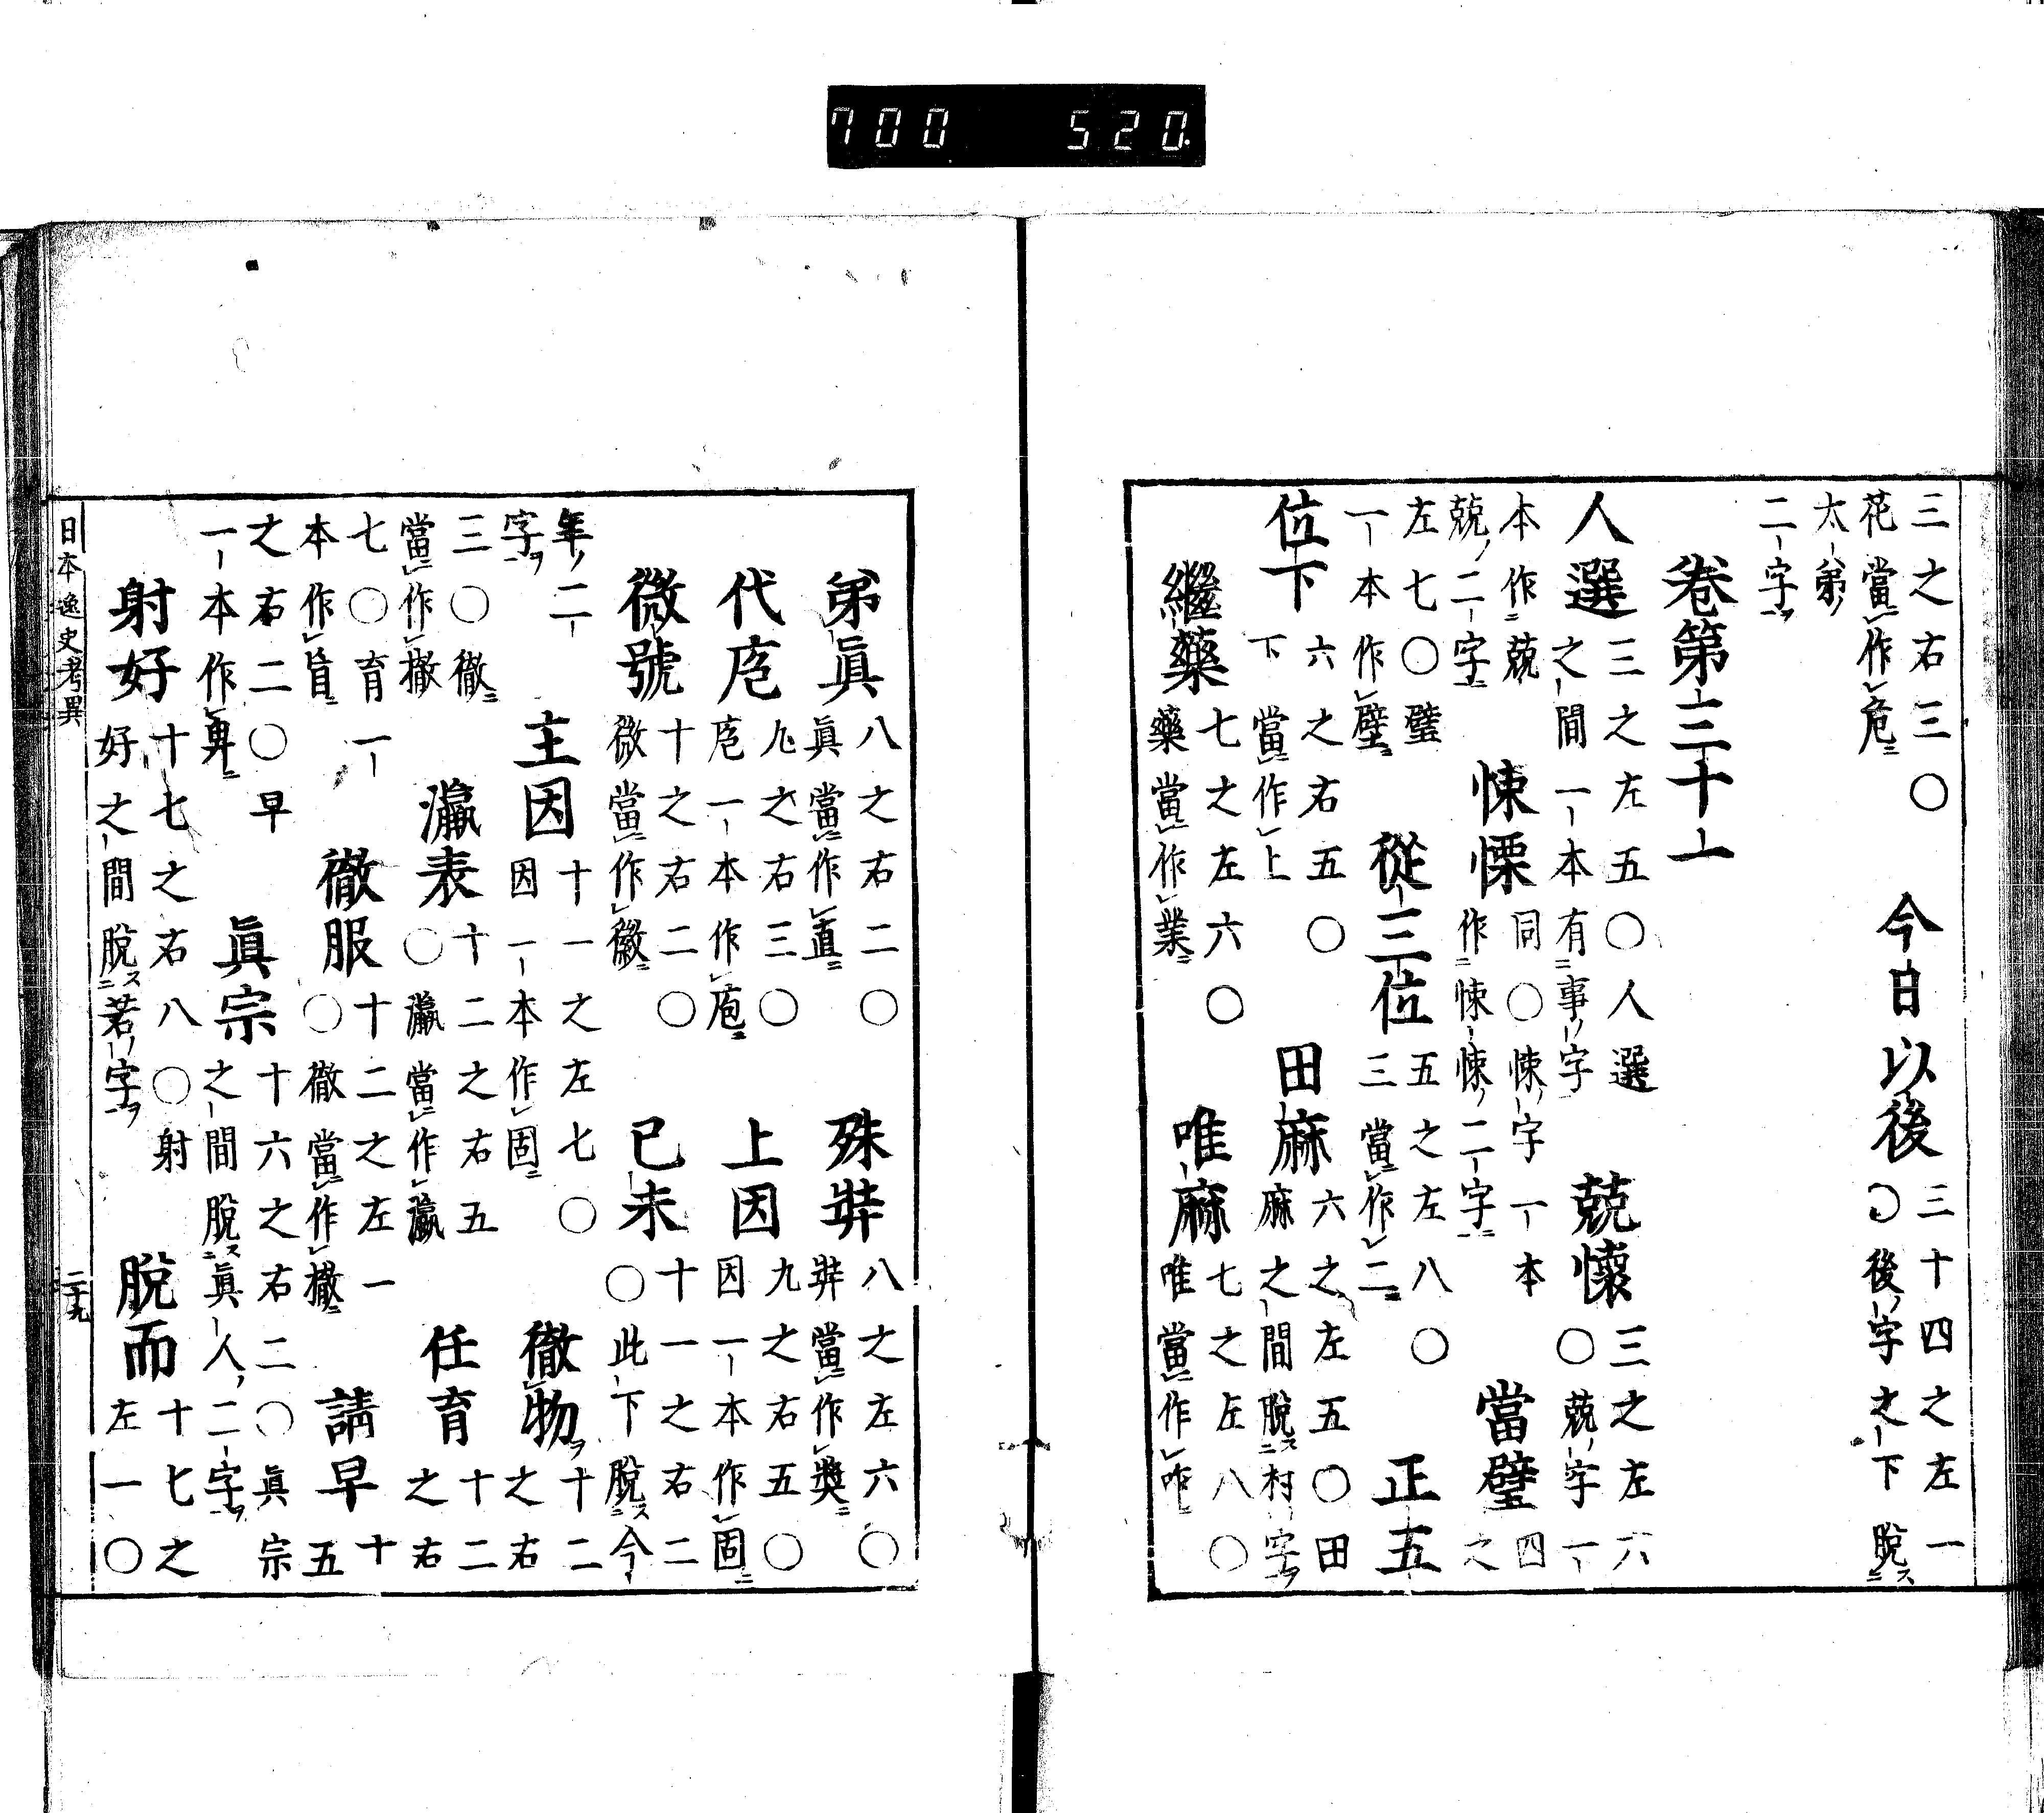 三之右三〇花當作危 今日以後 三十四之左一〇後ノ字之下脱ス
太弟ノ二字ヲ
卷第三十一
人選 三之左五〇人選之間一本有事ノ字 兢懷 三之左六〇兢ノ字一
本作兢兢ノ二字 悚慄 同〇悚ノ字一本作悚悚ノ二字 當璧 四之
左七〇璧一本作壁 從三位 五之左八〇三當作二 正五
位下 六之右五〇下當作上 田麻 六之左五〇田麻之間脱ス村ノ字ヲ
繼藥 七之左六〇藥當作業 唯麻 七之左八〇唯當作咋
弟眞 八之右二〇眞當作直 殊弉 八之左六〇弉當作奬
代庖 九之右三〇庖一本作庖 上因 九之右五〇因一本作固
微號 十之右二〇微當作徽 已未 十一之右二〇此下脱ス今
年ノ二字ヲ 主因 十一之左七〇因一本作固 徹物ヲ 十二之右
三〇徹當作撤 瀛表 十二之右五〇瀛當作瀛 任育 十二之右
七〇育一本作旨 徹服 十二之左一〇徹當作撤 請早 十五
之右二〇早一本作卑 眞宗 十六之右二〇眞宗之間脱ス眞人ノ二字ヲ
射好 十七之右八〇射好之間脱ス若ノ字ヲ 脱而 十七之左一〇
日本逸史考異 二十九
700 520